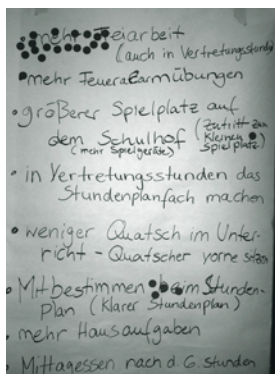 • mehr Freiarbeit
(auch in Vertretungsstunden)
• mehr Feueralarmübungen
• größerer Spielplatz auf
dem Schulhof (Zutritt zum
(mehr Spielgeräte) kleinen
Spielplatz)
• in Vertretungsstunden das
Stundenplanfach machen
• weniger Quatsch im Unter-
richt - Quatscher vorne sitzen
• Mitbestimmen beim Stunden-
plan (Klarer Stundenplan)
• mehr Hausaufgaben
• Mittagessen nach d. 6. Stunden